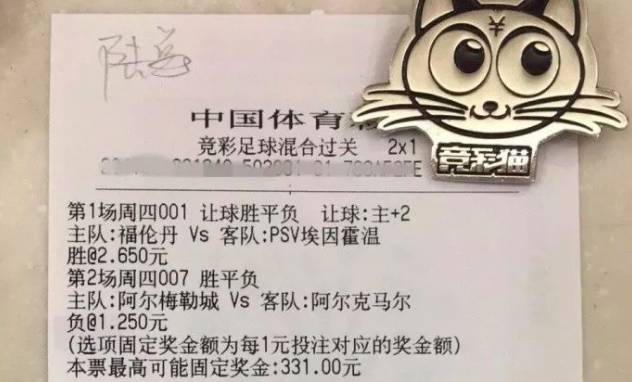 中国体育
竞彩足球混合过关 2x1
第1场周四001 让球胜平负 让球:主+2
主队:福伦丹 Vs 客队:PSV埃因霍温
胜@2.650元
第2场周四007 胜平负
主队:阿尔梅勒城 Vs 客队:阿尔克马尔
负@1.250元
(选项固定奖金额为每1元投注对应的奖金额)
本票最高可能固定奖金:331.00元
¥
竞彩猫